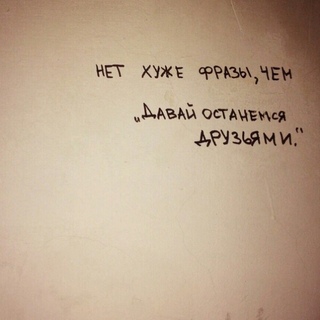 НЕТ ХУЖЕ ФРАЗЫ, ЧЕМ
„ДАВАЙ ОСТАНЕМСЯ
ДРУЗЬЯМИ."